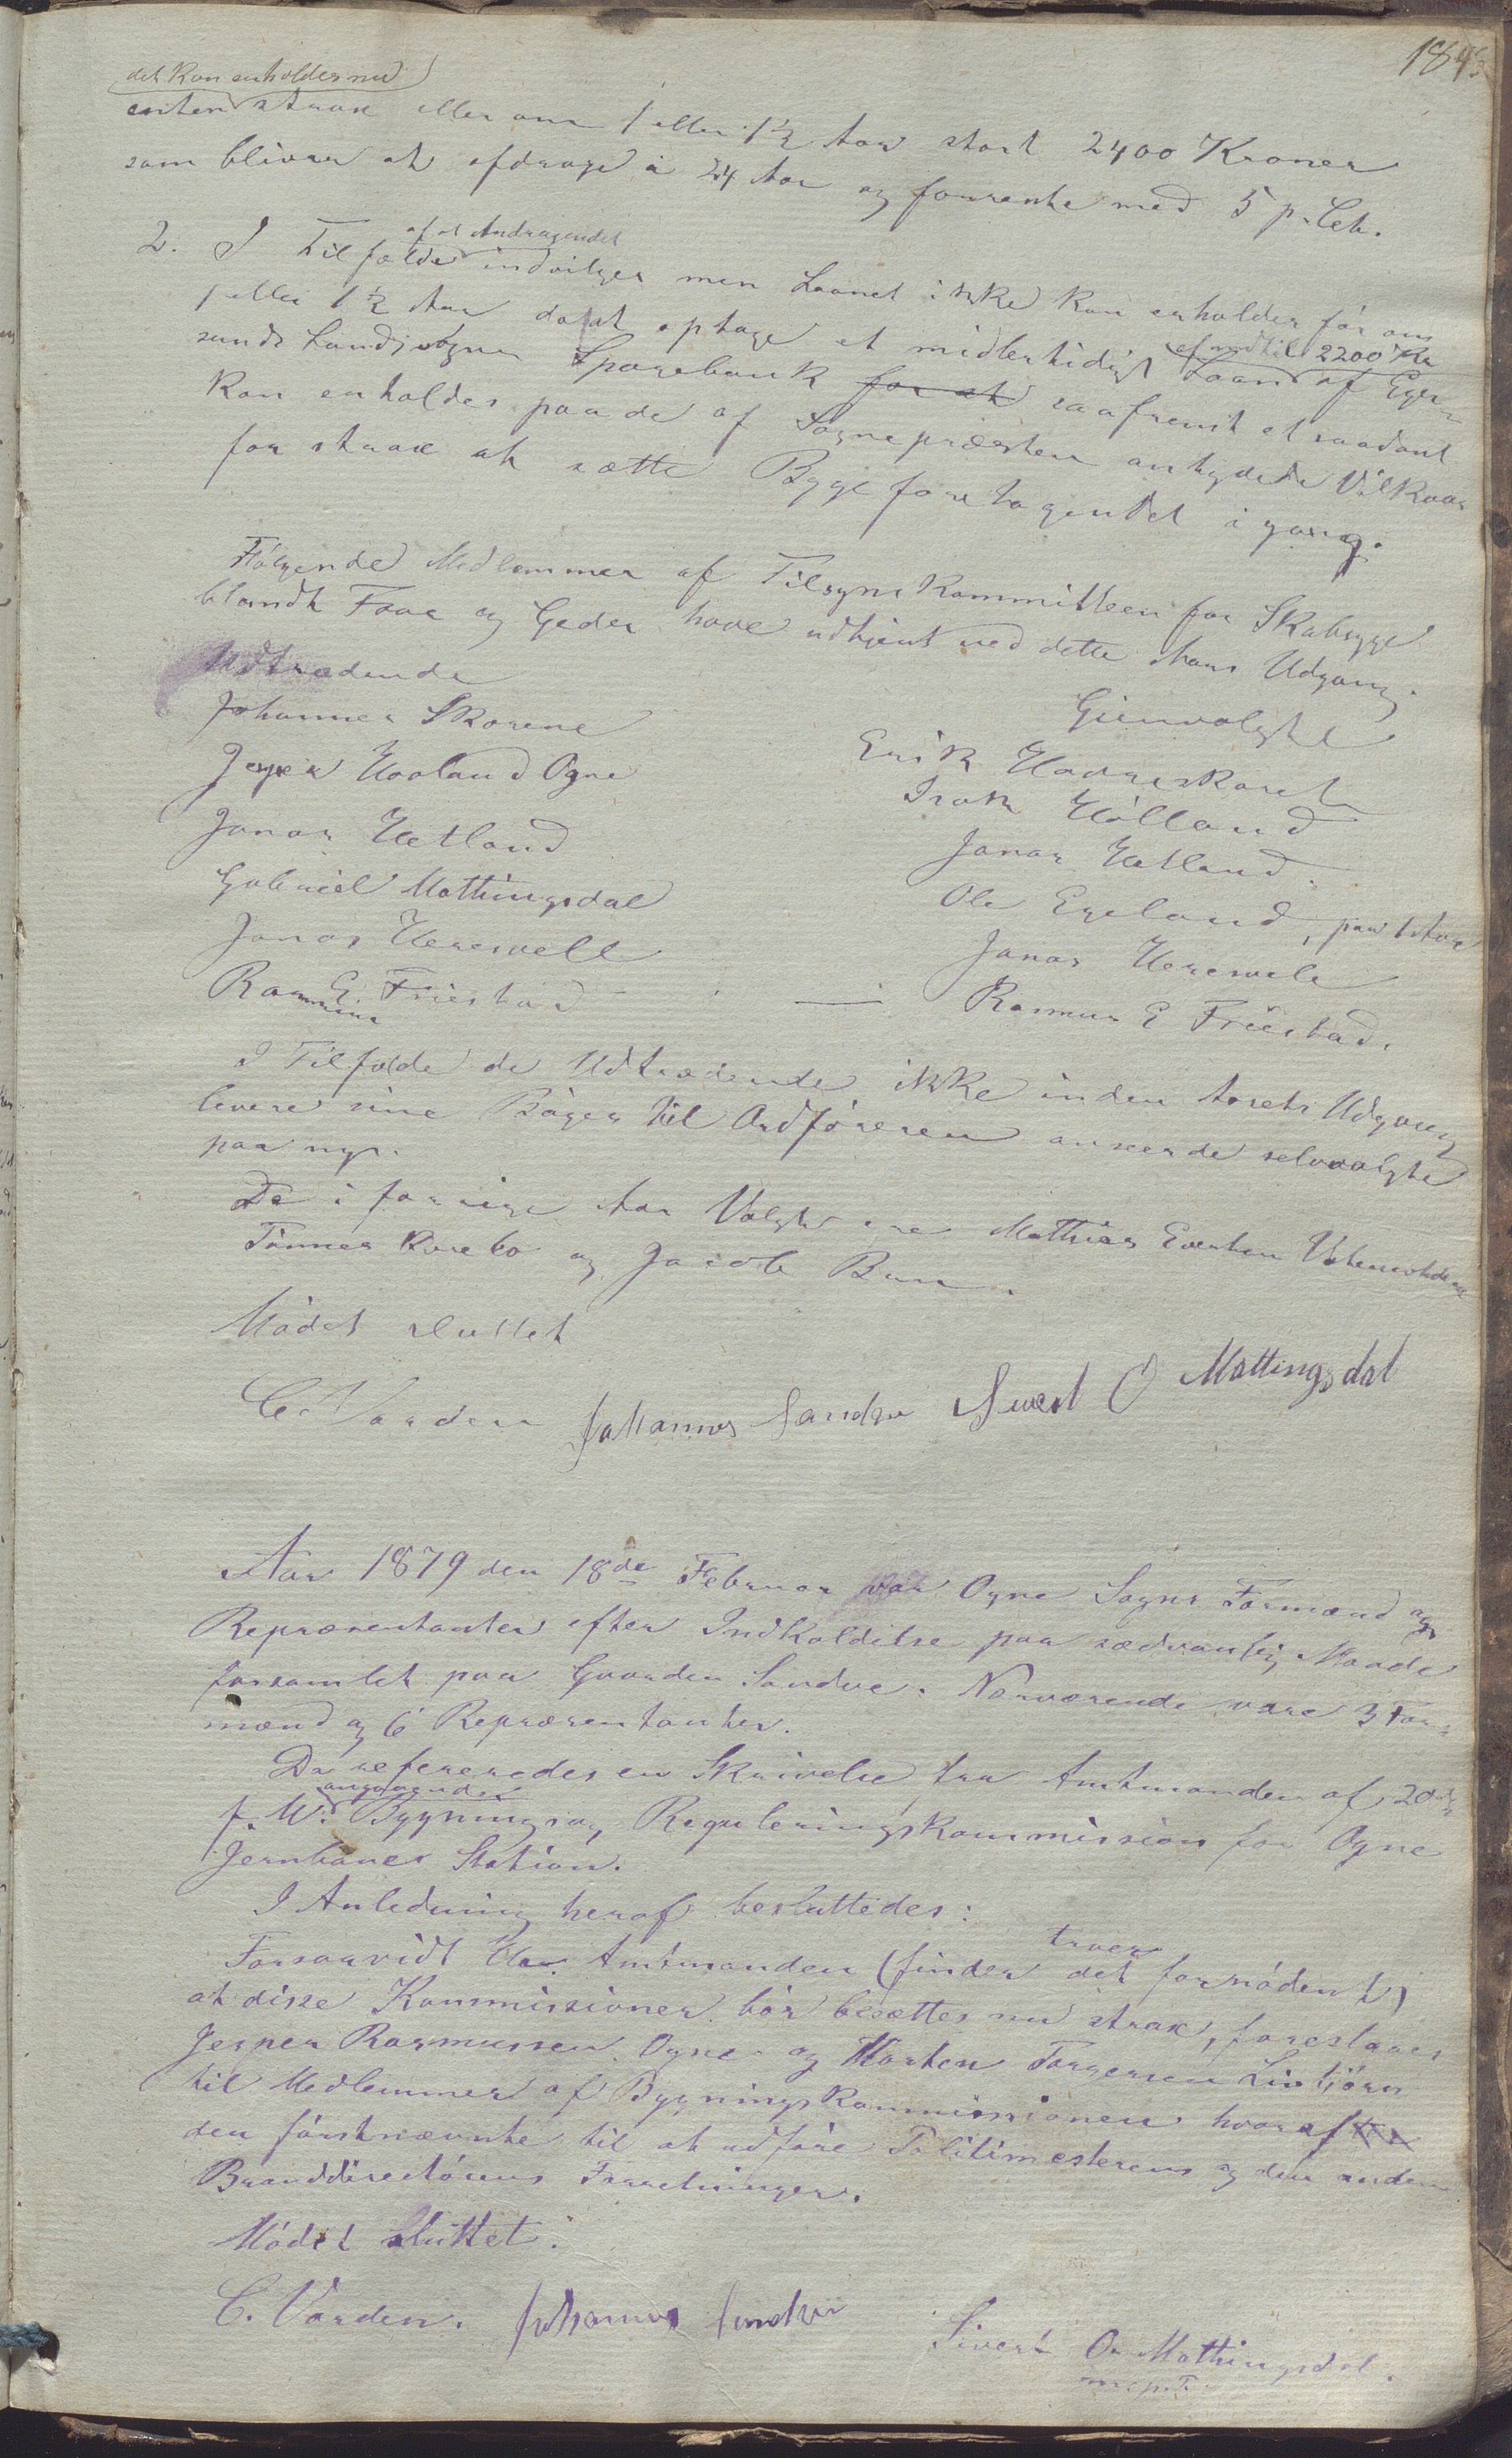 184
det kan erholdes nu
enten strax eller om 1 eller 1½ Aar stort 2400 Kroner
som bliver at afdrage i 24 Aar og forrente med 5 p. Ct.
af at Andragendet
2. I Tilfælde indvilges men Laanet ikke kan erholdes før om
1 eller 1½ Aar da at optage et midlertidigt Laan af Eger-
indtil 2200 Kr
sunds Landsogns Sparebank for at saafremt et saadant
kan erholdes paa de af Sognepræsten antydede Vilkaar
for strax at sætte Byggeforetagendet i gang.
Følgende Medlemmer af Tilsynskommitteen for Skabsyge
blandt Faar og Geder have udtjent ved dette Aars Udgang.
Udtrædende
Gienvalgte
Johannes Skorene
Erik Havreskaret
Jesper Hovland Ogne
Isak Hölland
Jonas Hetland
Jonas Hetland.
Gabriel Mattingsdal
Ole Egeland, paa 1 Aar
Jonas Herewell
Jonas Herewele
Rasmus E. Friestad — Rasmus E Friestad.
I Tilfælde de Udtrædende ikke inden Aarets Udgang
levere sine Bøger til Ordføreren ansees de selvvalgte
paa ny.
De i forrige Aar Valgte ere Mathias Evertsen
Tønnes Rosebø og Jacob Bue.
Mødet sluttet
C. Varden Johannes Sandve Sivert O Mattingsdal
Aar 1879 den 18de Februar var Ogne Sogns Formænd og
Repræsentanter efter Indkaldelse paa sædvanlig Maade
forsamlet paa Gaarden Sandve. Nærværende vare 3 For-
mænd og 6 Repræsentanter.
Da refereredes en Skrivelse fra Amtmanden af 20de
angaaende
f. M. Bygnings og Reguleringskommission for Ogne
Jernbanes Station.
I Anledning heraf besluttedes:
troer
Forsaavidt Hr. Amtmanden (finder det fornødent)
at disse Kommissioner bør besættes nu strax, foreslaaes
Jesper Rasmussen Ogne og Morten Torgersen Lintjørn
til Medlemmer af Bygningskommissionen hvoraf
den førstnævnte til at udføre Politimesterens og den anden
Branddirectørens Forretninger.
Mødet sluttet.
C. Varden. Johannes Sandve
Sivert O. Mattingsdal.
m. p. P.